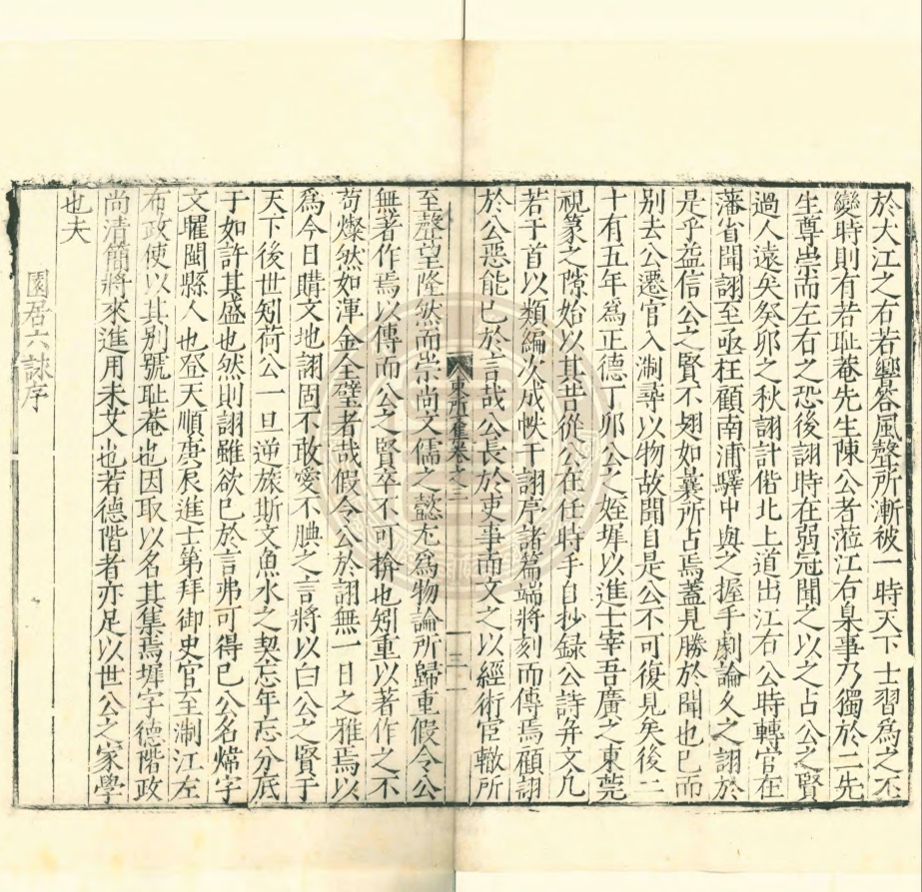 於大江之右若響答風聲所漸被一時天下士習爲之丕
變時則有若耻菴先生陳公者涖江右臬事乃獨於二先
生尊崇而左右之恐後詡時在弱冠聞之以之占公之賢
過人遠矣癸卯之秋詡計偕北上道出江右公時轉官在
藩省聞詡至亟枉顧南浦驛中與之握手劇論久之詡於
是乎益信公之賢不翅如曩所占焉蓋見勝於聞也已而
别去公遷官入淛尋以物故聞自是公不可復見矣後二
十有五年爲正德丁卯公之姪墀以進士宰吾廣之東莞
視篆之隙始以其昔從公在任時手自抄録公詩并文凡
若干首以類編次成帙干詡序諸篇端將刻而傳焉顧詡
於公惡能已於言哉公長於吏事而文之以經術宦轍所
東所文集卷之三
三
至聲望隆然而崇尚文儒之懿尤爲物論所歸重假令公
無著作焉以傳而公之賢卒不可揜也矧重以著作之不
苟燦然如渾金全璧者哉假令公於詡無一日之雅焉以
爲今日購文地詡固不敢愛不腆之言將以白公之賢于
天下後世矧荷公一旦逆旅斯文魚水之契忘年忘分底
于如許其盛也然則詡雖欲已於言弗可得已公名煒字
文曜閩縣人也登天順庚辰進士第拜御史官至淛江左
布政使以其别號耻菴也因取以名其集焉墀字德階政
尚清簡將來進用未艾也若德階者亦足以世公之家學
也夫
園居六詠序